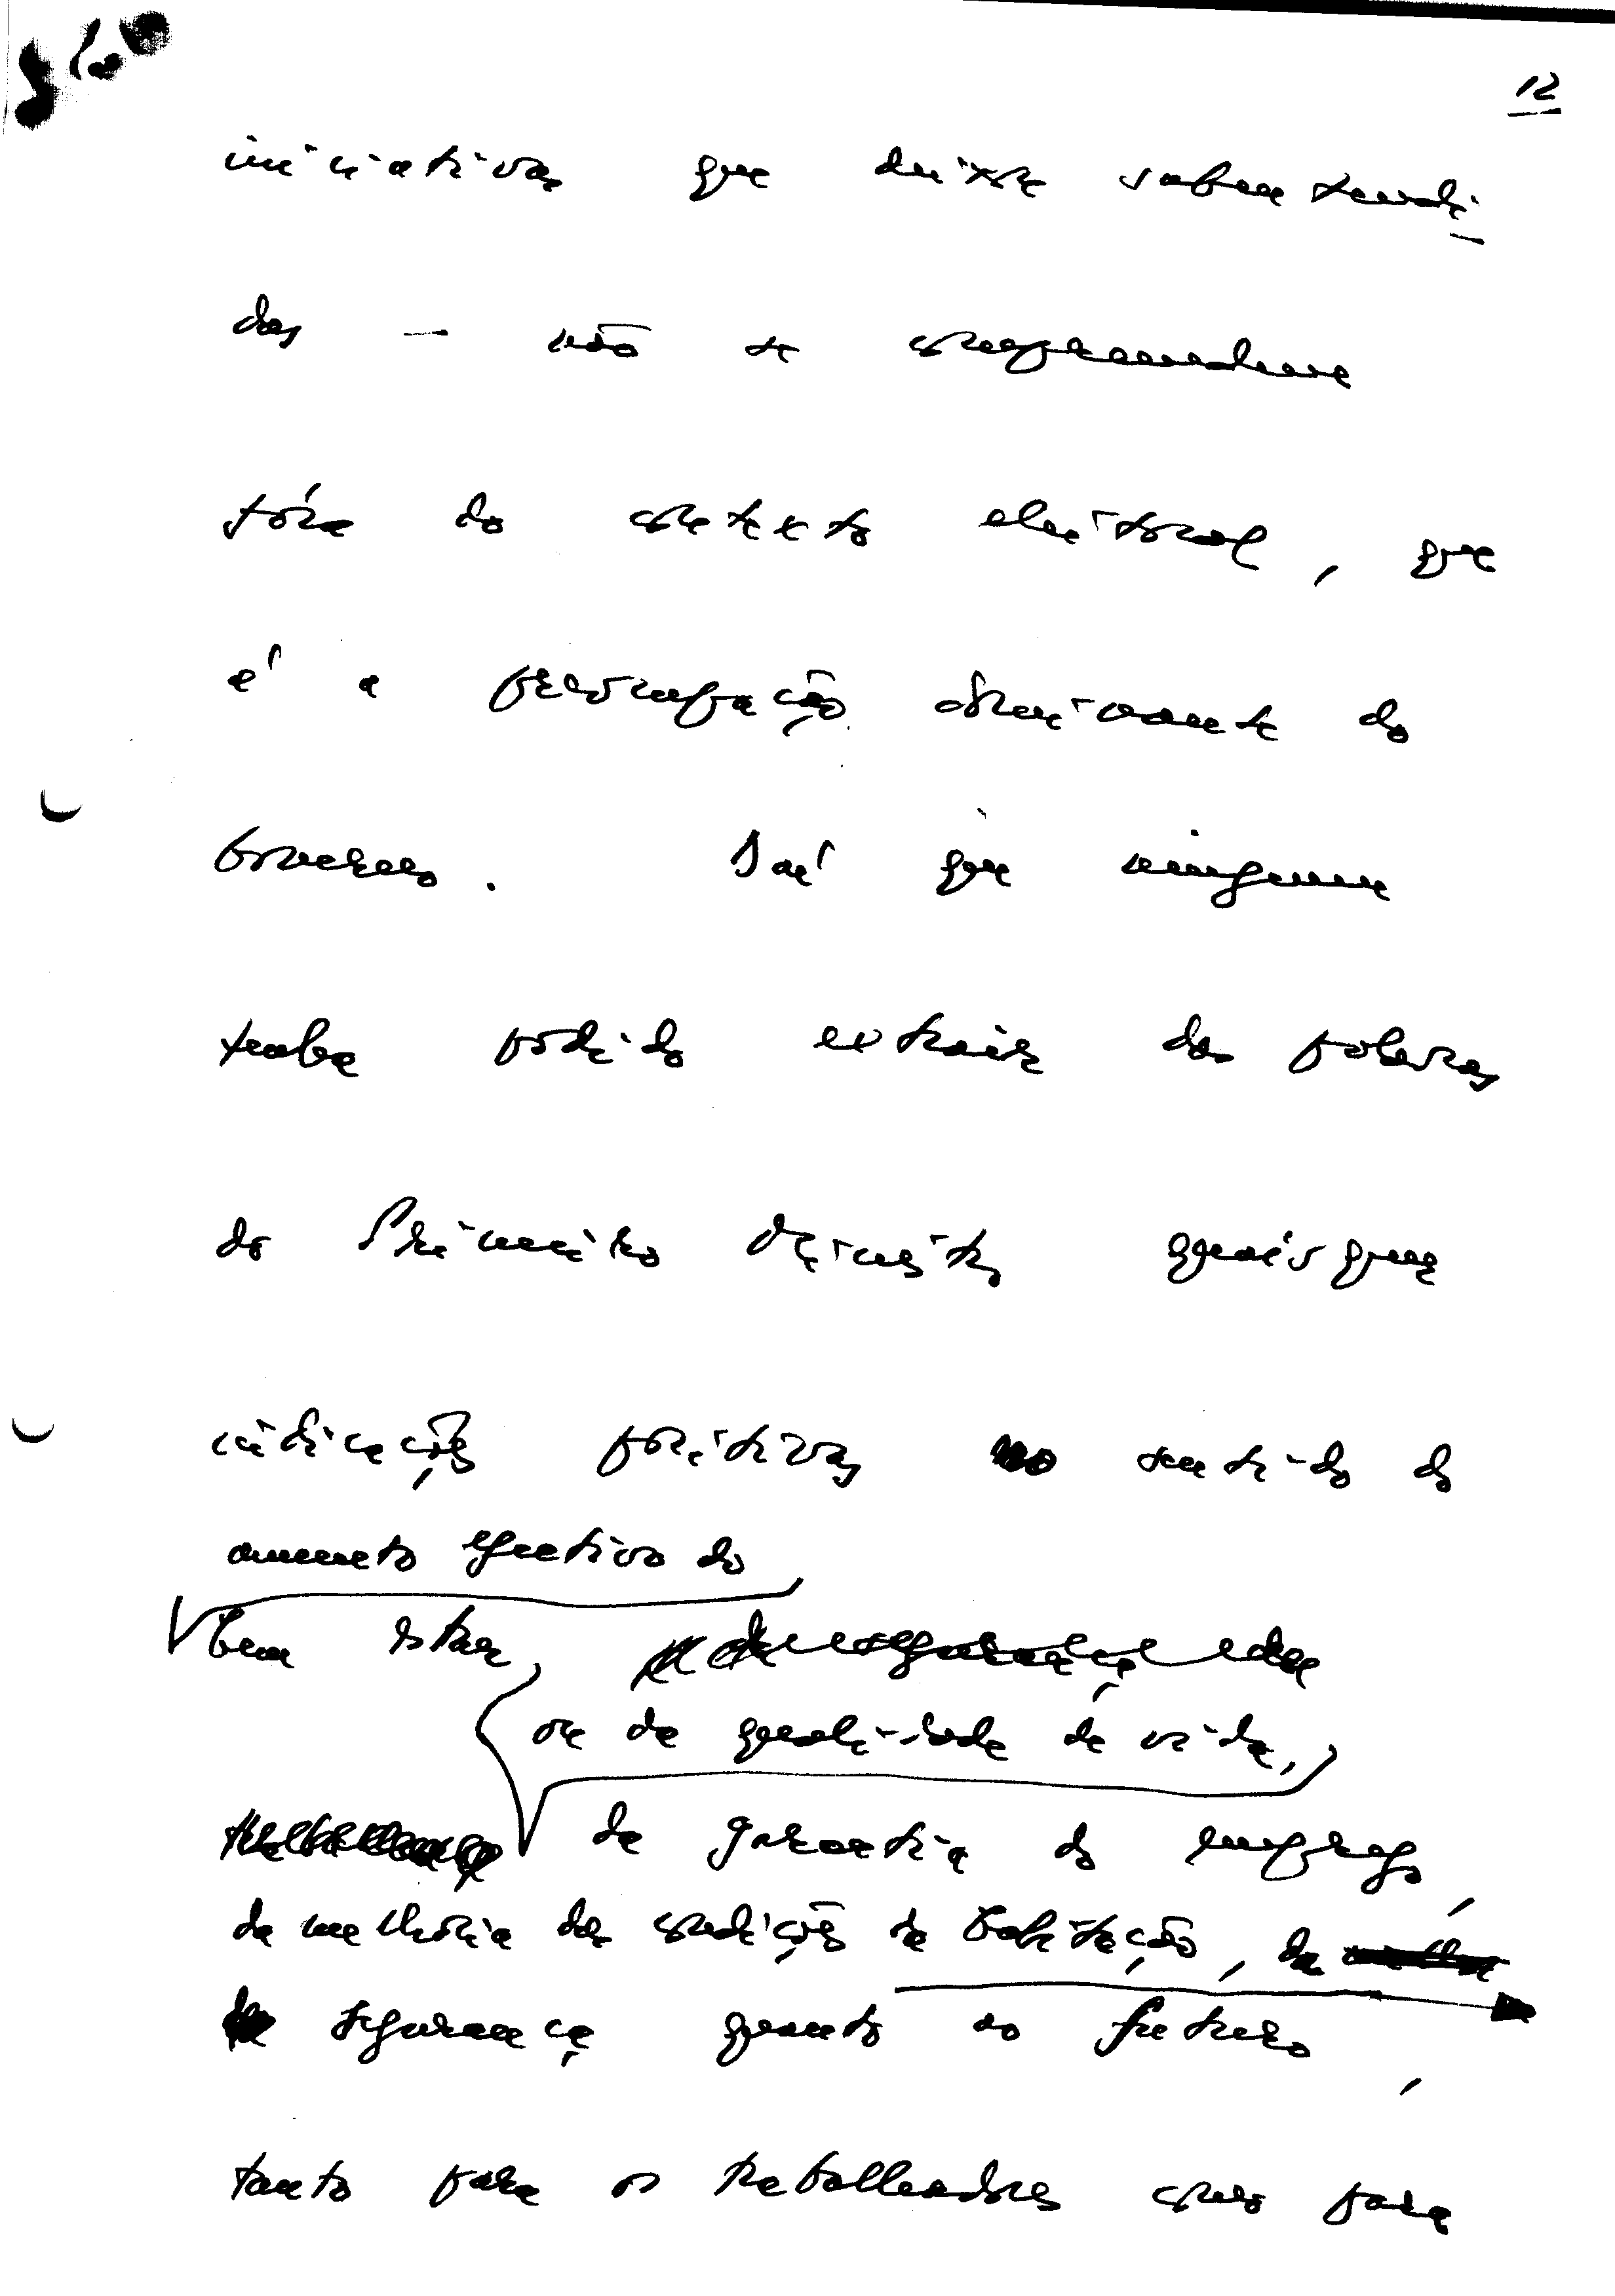 12
iniciativas que deixa subentendi-
das — não se compreendem
fóra do contexto eleitoral, que
é a preocupação dominante do
Governo. Daí que ninguem
tenha podido extrair das palavras
do Primeiro Ministro quaisquer
indicações positivas no sentido do
aumento efectivo do
bem estar,
ou da qualidade de vida,
da garantia do emprego,
da melhoria das condições de habitação, da
segurança quanto ao futuro,
tanto para os trabalhadores como para